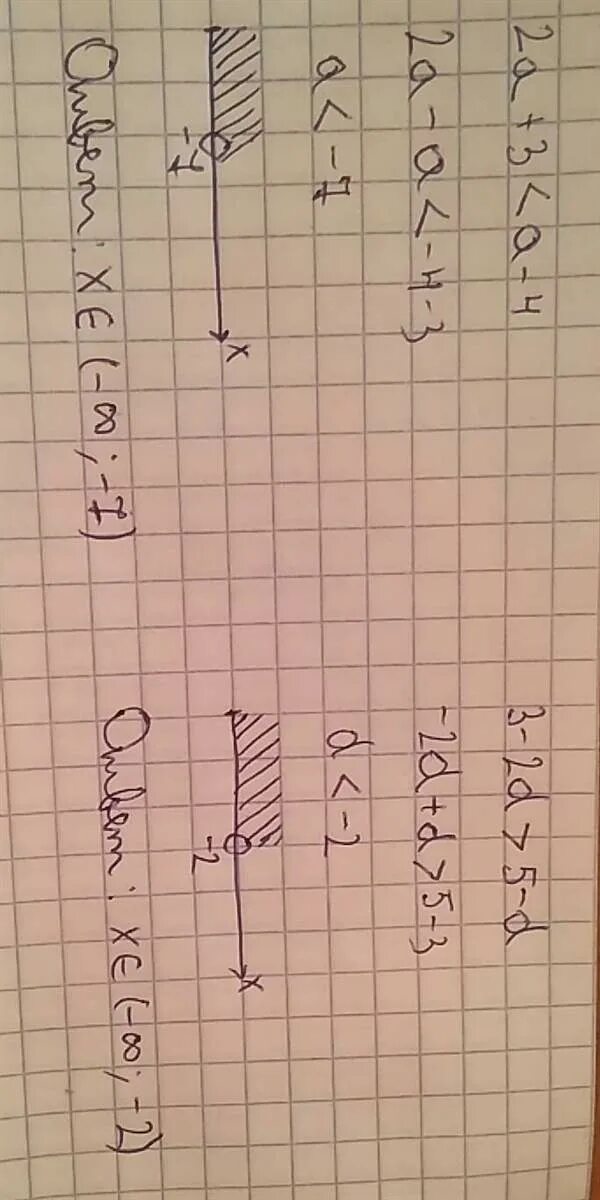 2a + 3 < a - 4
2a - a < -4 - 3
a < -7
-7
x
Ответ: x ∈ (-∞; -7)
3 - 2d > 5 - d
-2d + d > 5 - 3
d < -2
-2
x
Ответ: x ∈ (-∞; -2)